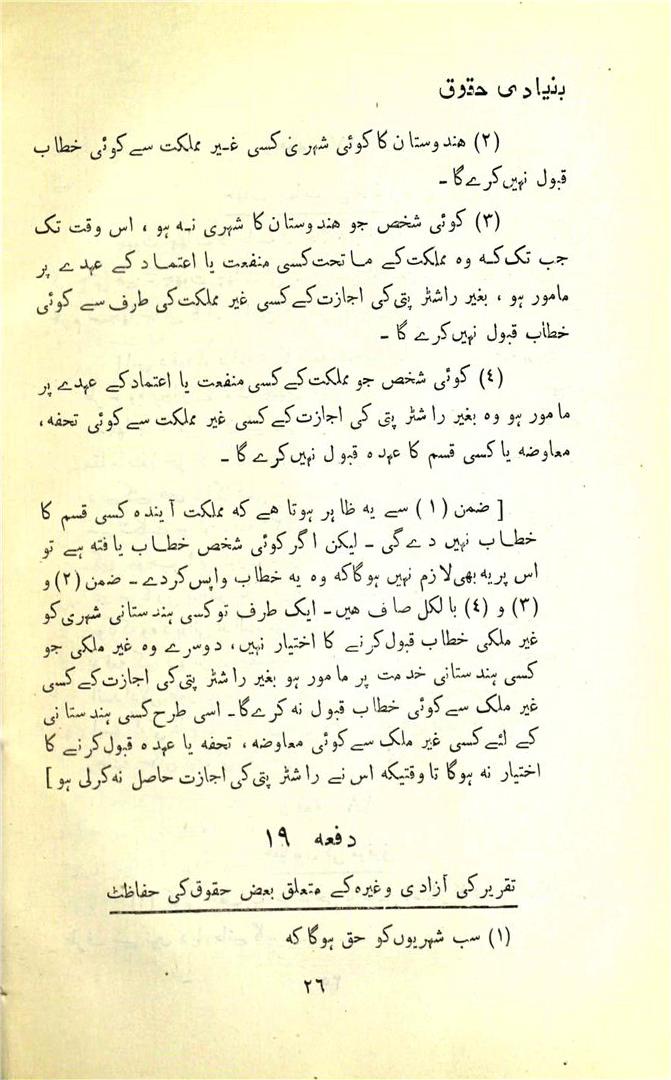 بنیادی حقوق
(۲) ھندوستان کا کوئی شہری کسی غیر مملکت سے کوئی خطاب
قبول نہیں کرے گا ۔
(۳) کوئی شخص جو ھندوستان کا شہری نہ ہو ، اس وقت تک
جب تک کہ وہ مملکت کے ماتحت کسی منفعت یا اعتماد کے عہدے پر
مامور ہو ، بغیر راشٹر پتی کی اجازت کے کسی غیر مملکت کی طرف سے کوئی
خطاب قبول نہیں کرے گا ۔
(٤) کوئی شخص جو مملکت کے کسی منفعت یا اعتماد کے عہدے پر
مامور ہو وہ بغیر راشٹر پتی کی اجازت کے کسی غیر مملکت سے کوئی تحفہ،
معاوضہ یا کسی قسم کا عہدہ قبول نہیں کرے گا ۔
[ ضمن (۱) سے یہ ظاہر ہوتا ھے کہ مملکت آیندہ کسی قسم کا
خطاب نہیں دے گی ۔ لیکن اگر کوئی شخص خطاب یافتہ ہے تو
اس پر یہ بھی لازم نہیں ہوگا کہ وہ یہ خطاب واپس کردے ۔ ضمن (۲) و
(۳) و (٤) بالکل صاف ھیں ۔ ایک طرف تو کسی ہندستانی شہری کو
غیر ملکی خطاب قبول کرنے کا اختیار نہیں، دوسرے وہ غیر ملکی جو
کسی ہندستانی خدمت پر مامور ہو بغیر راشٹر پتی کی اجازت کے کسی
غیر ملک سے کوئی خطاب قبول نہ کرے گا ۔ اسی طرح کسی ہندستانی
کے لئے کسی غیر ملک سے کوئی معاوضہ، تحفہ یا عہدہ قبول کرنے کا
اختیار نہ ہوگا تاوقتیکہ اس نے راشٹر پتی کی اجازت حاصل نہ کرلی ہو ]
دفعہ ۱۹
تقریر کی آزادی وغیرہ کے متعلق بعض حقوق کی حفاظت
(۱) سب شہریوں کو حق ہوگا کہ
۲٦